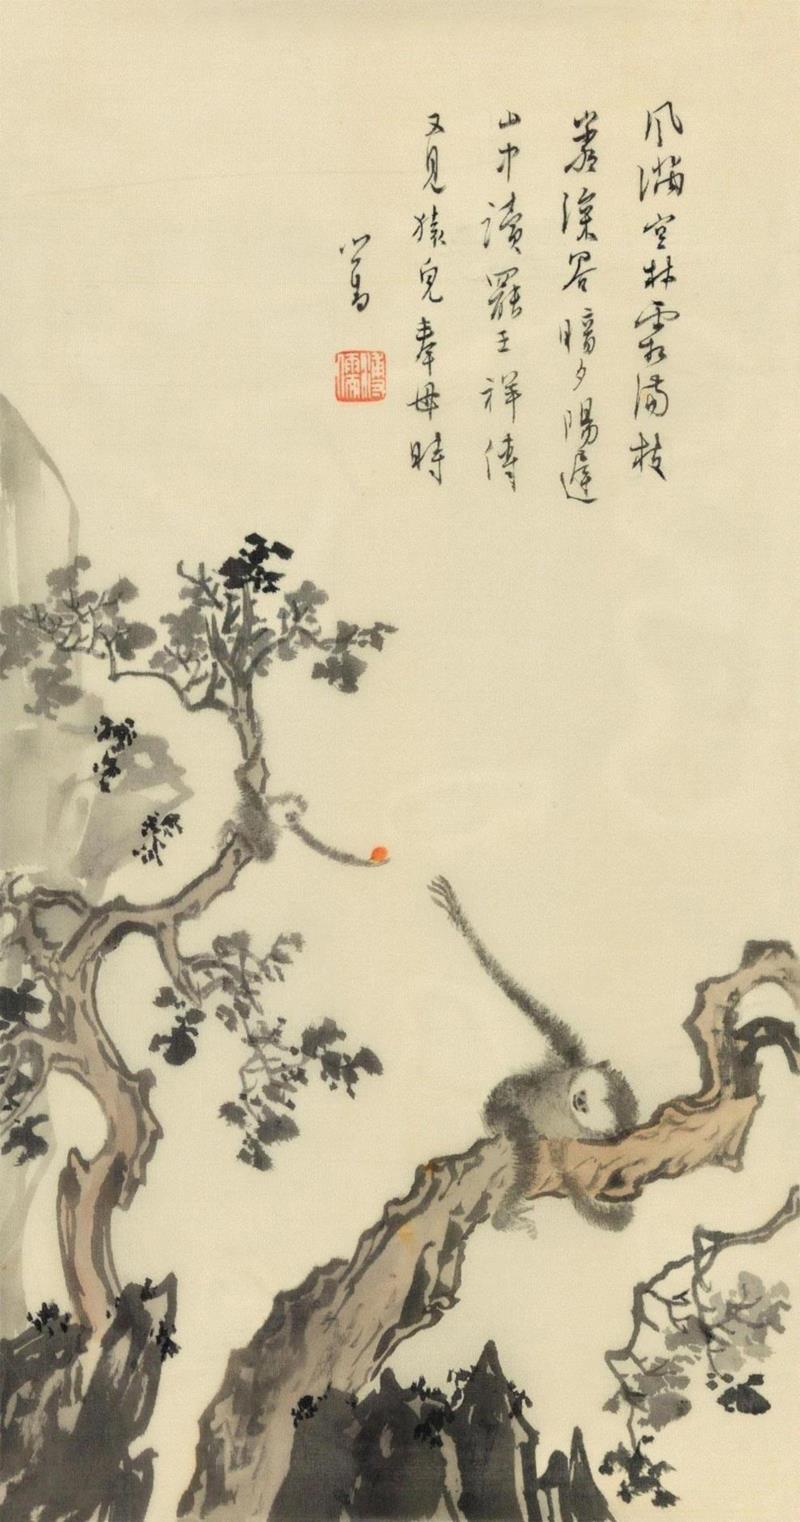 風滿空林霜滿枝
深谷暗夕陽遲
山中讀罷王祥傳
又見猿兒奉母時
心畬
溥儒